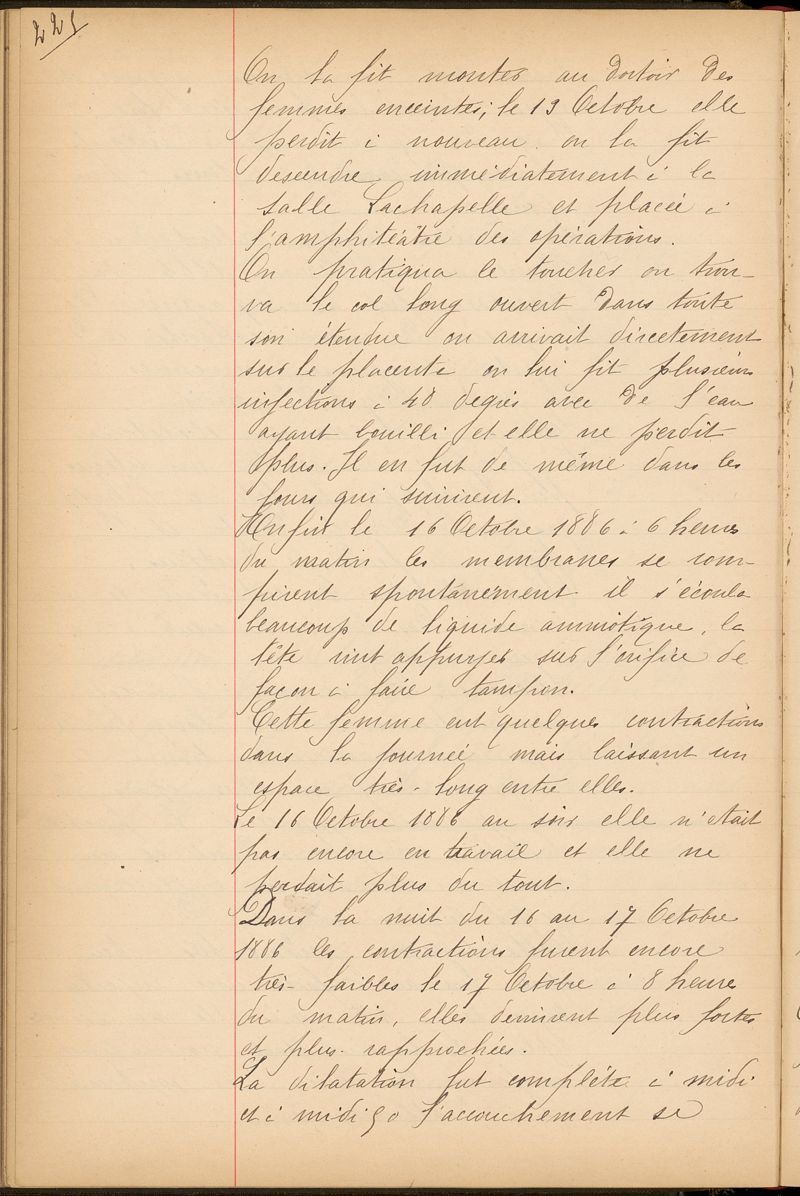 225
On la fit monter au dortoir des
femmes enceintes; le 13 Octobre elle
perdit à nouveau on la fit
descendre immédiatement à la
salle Lachapelle et placée à
l'amphitéâtre des opérations.
On pratiqua le toucher on trou-
va le col long ouvert dans toute
son étendue on arrivait directement
sur le placenta on lui fit plusieurs
injections à 48 degrés avec de l'eau
ayant bouilli et elle ne perdit
plus. Il en fut de même dans les
jours qui suivirent.
Enfin le 16 Octobre 1886 à 6 heures
du matin les membranes se rom-
pirent spontanément il s'écoula
beaucoup de liquide ammiotique, la
tête vint appuyer sur l'orifice de
façon à faire tampon.
Cette femme eut quelques contractions
dans la journée mais laissant un
espace très-long entre elles.
Le 16 Octobre 1886 au soir elle n'était
pas encore en travail et elle ne
perdait plus du tout.
Dans la nuit du 16 au 17 Octobre
1886 les contractions furent encore
très-faibles le 17 Octobre à 8 heures
du matin, elles devinrent plus fortes
et plus rapprochées.
La dilatation fut complète à midi
et à midi 50 l'accouchement se